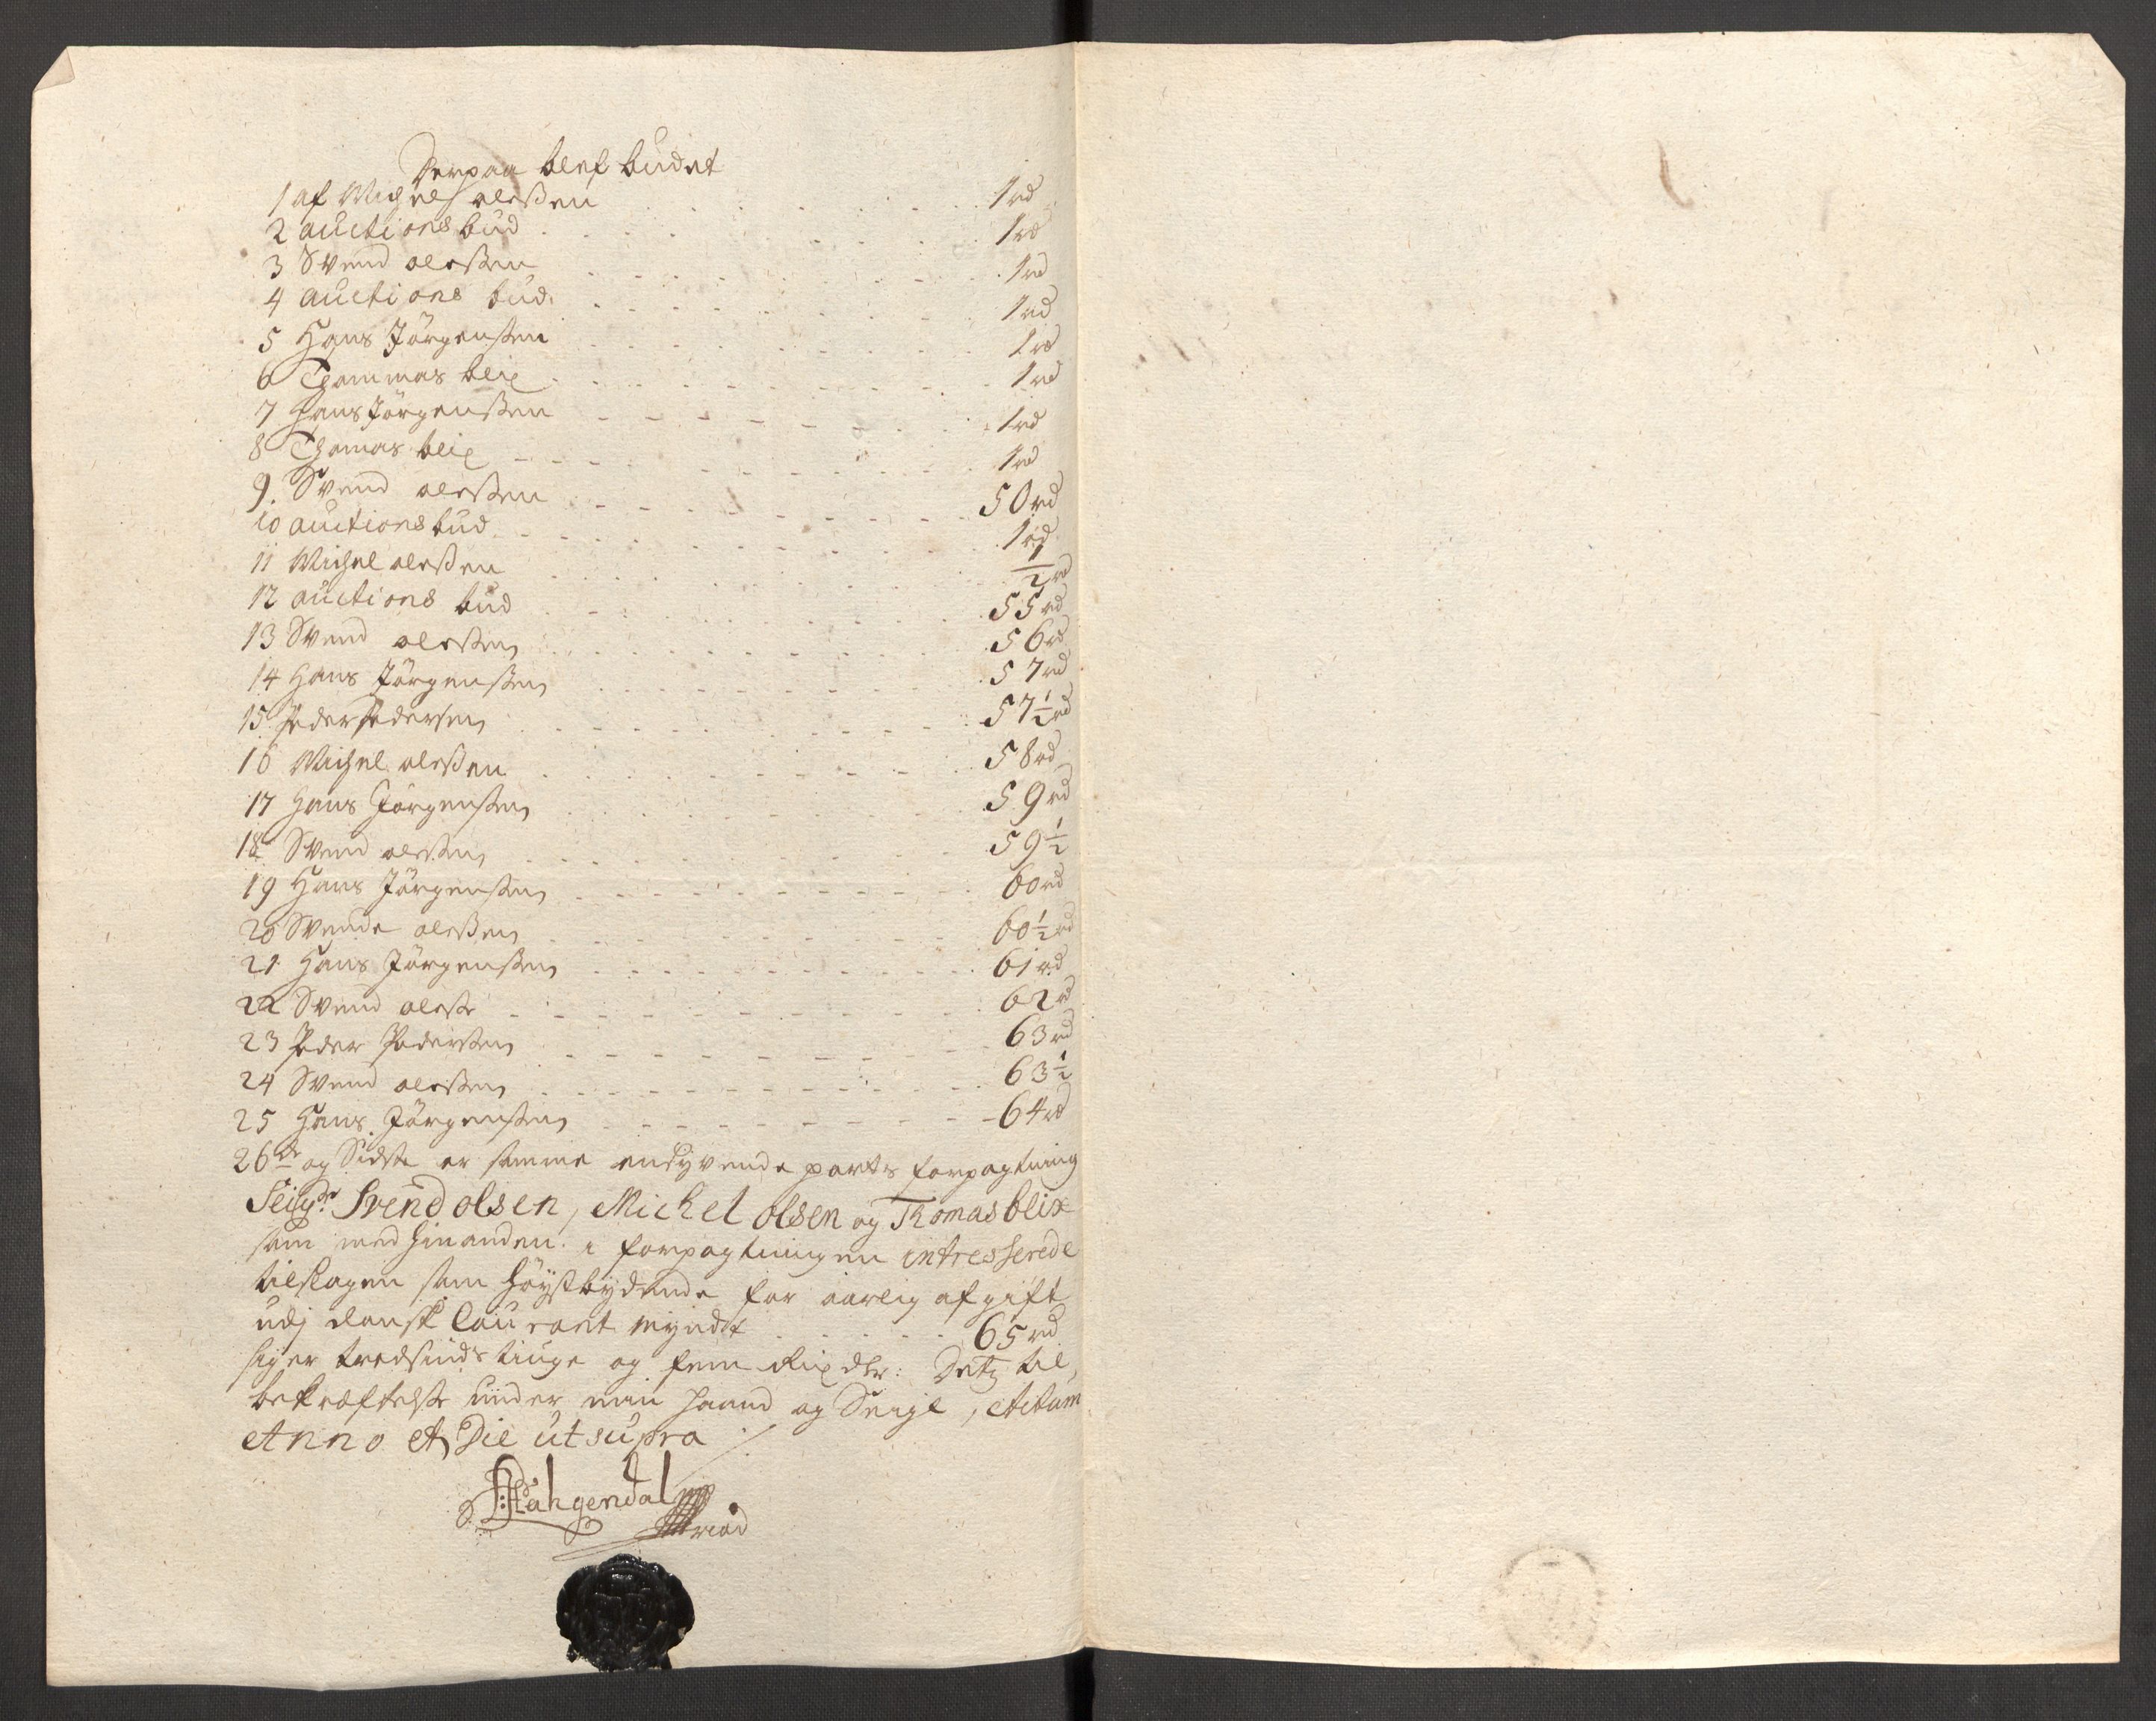 Derpaa blef budet
1 af Michel olessen . . . . 1 rd
2 auctions bud . . . . 1 rd
3 Svend olessen . . . . 1 rd
4 auctions bud . . . . 1 rd
5 Hans Jörgensen . . . . 1 rd
6 Thommas blix . . . . 1 rd
7 Hans Jörgenssen . . . . 1 rd
8 Thomas blix . . . . 1 rd
9. Svend olessen . . . . 50 rd
10 auctions bud . . . . 1 rd
11 Michel olessen . . . . 1/2 rd
12 auctions bud . . . . 55 rd
13 Svend olessen . . . . 56 rd
14 Hans Jörgenssen . . . . 57 rd
15 Peder Pedersen . . . . 57 1/2 rd
16 Michel olessen . . . . 58 rd
17 Hans Jörgenssen . . . . 59 rd
18 Svend olessen . . . . 59 1/2
19 Hans Jörgenssen . . . . 60 rd
20 Svende olessen . . . . 60 1/2 rd
21 Hans Jörgenssen . . . . 61 rd
22 Svend olesse . . . . 62 rd
23 Peder Pederssen . . . . 63 rd
24 Svend olessen . . . . 63 1/2
25 Hans Jörgenssen . . . . 64 rd
26de og Sidste er samme tredyvende parts forpagtning
Seigr Svend olsen, Michel olsen og Thomas blix
som med hinanden i forpagtningen intresserede
tilslagen som höystbydende for aarlig afgift
udj dansk Courant myndt . . . . 65 rd
siger tredsinds tiuge og fem Rixdlr: Dets til
bekræftelse under min haand og Seigl, Actum
Anno et Die ut supra